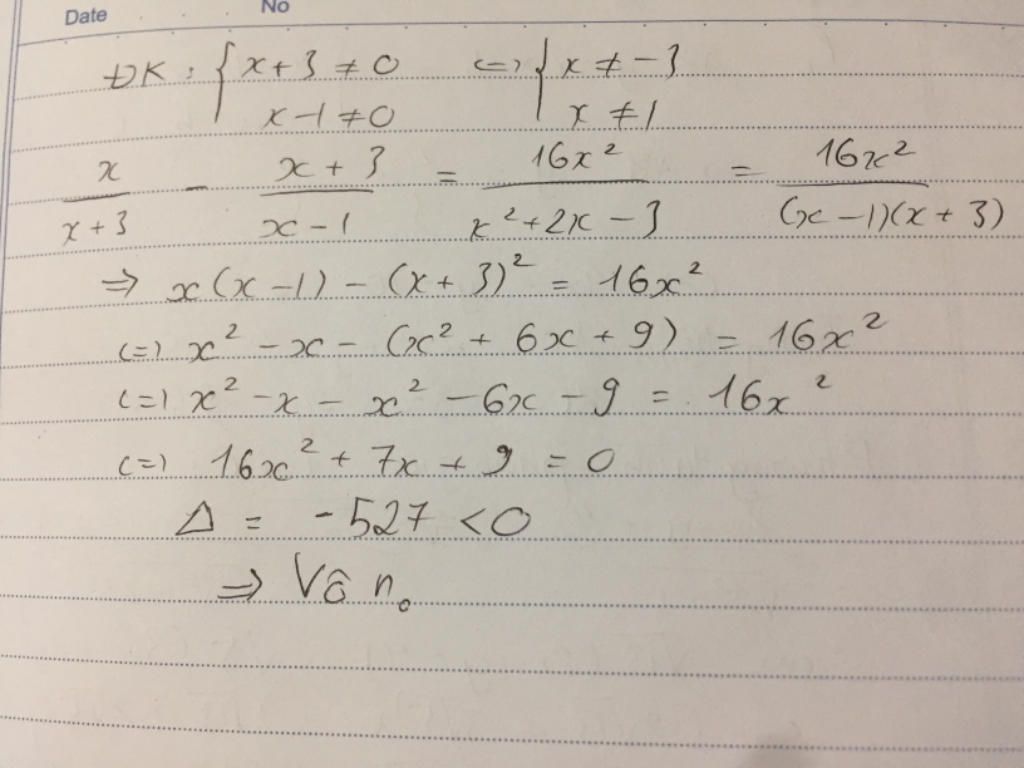 Date No
ĐK: { x+3 ≠ 0 <=> { x ≠ -3
x-1 ≠ 0 x ≠ 1
x/(x+3) - (x+3)/(x-1) = 16x²/(x²+2x-3) = 16x²/((x-1)(x+3))
=> x(x-1) - (x+3)² = 16x²
<=> x² - x - (x² + 6x + 9) = 16x²
<=> x² - x - x² - 6x - 9 = 16x²
<=> 16x² + 7x + 9 = 0
Δ = -527 < 0
=> Vô n₀